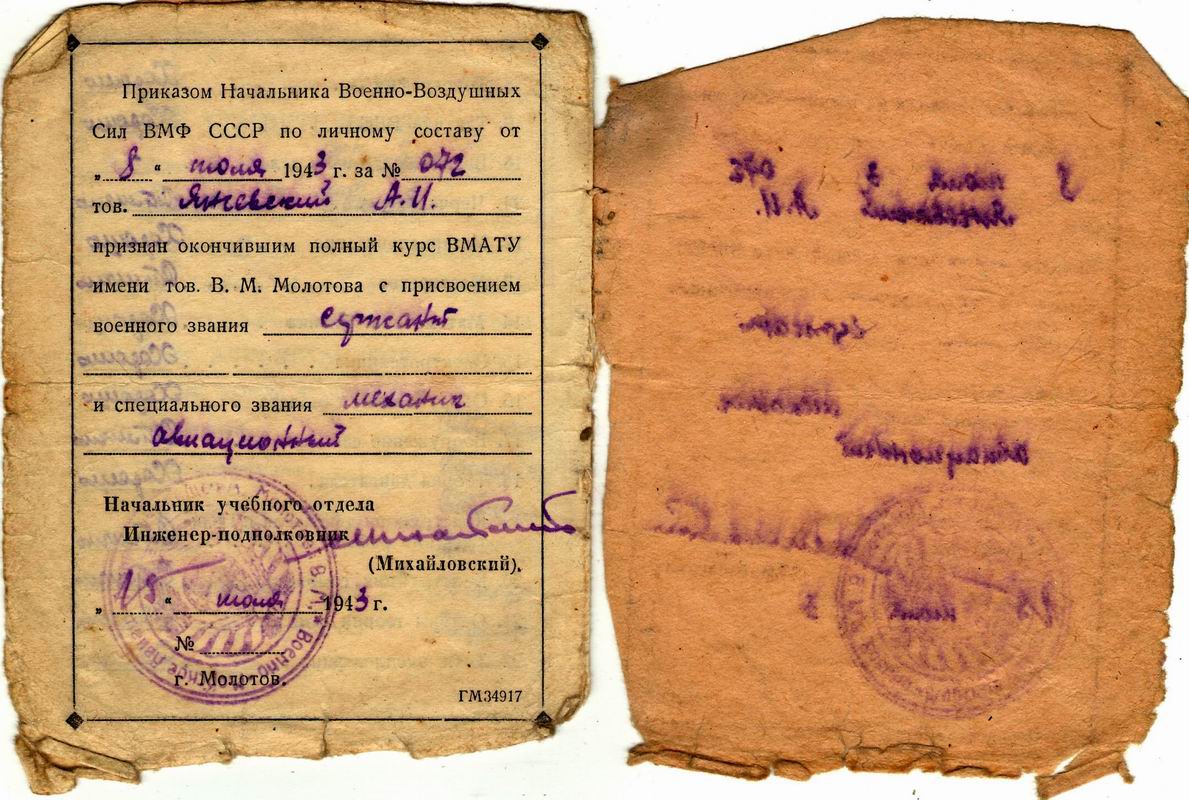 Приказом Начальника Военно-Воздушных
Сил ВМФ СССР по личному составу от
„ 8 “ июля 1943 г. за № 072
тов. Янчевский А.И.
признан окончившим полный курс ВМАТУ
имени тов. В. М. Молотова с присвоением
военного звания сержант
и специального звания механик
авиационный
Начальник учебного отдела
Инженер-подполковник
(Михайловский).
„ 15 “ июля 1943 г.
№
г. Молотов.
ГМ34917